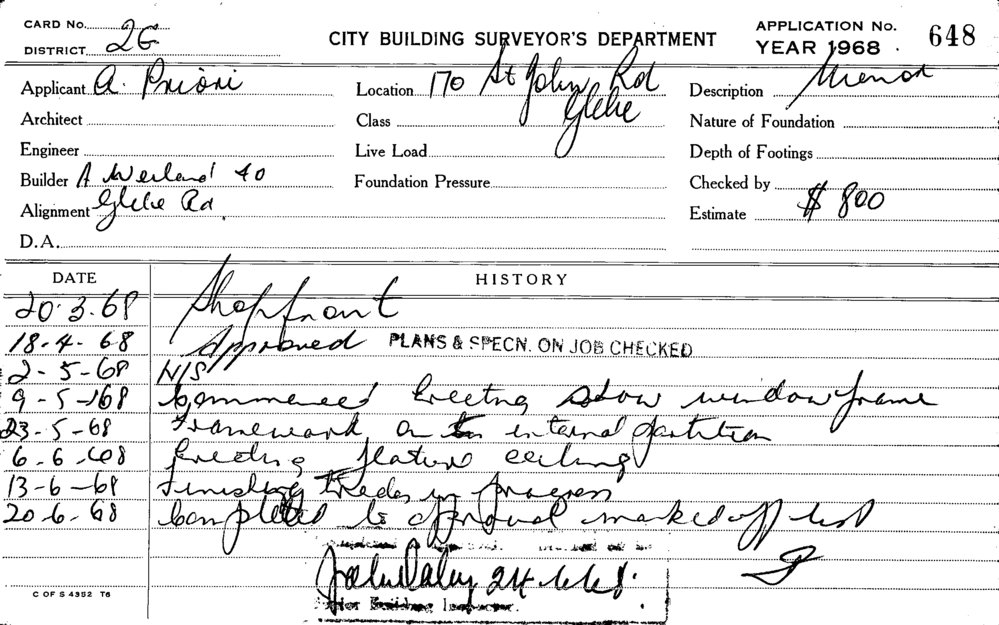 CARD No.
DISTRICT 2G
CITY BUILDING SURVEYOR'S DEPARTMENT
APPLICATION No. 648
YEAR 1968
Applicant A. Priori
Location 170 St John Rd
Glebe
Description
Architect
Class
Nature of Foundation
Engineer
Live Load
Depth of Footings
Builder A 40
Foundation Pressure
Checked by
Alignment Glebe Rd.
Estimate $ 800
D.A.
DATE HISTORY
20.3.68 Shopfront
18-4-68 Approved PLANS & SPECN. ON JOB CHECKED
2-5-68 N/S
9-5-68 Commenced Erecting show window frame
23-5-68 Framework on internal partition
6-6-68 Erecting feature ceiling
13-6-68 Finishing Trades in progress
20-6-68 Completed to approval marked off list
24.6.68.
Building Inspector.
C OF S 4352 T6